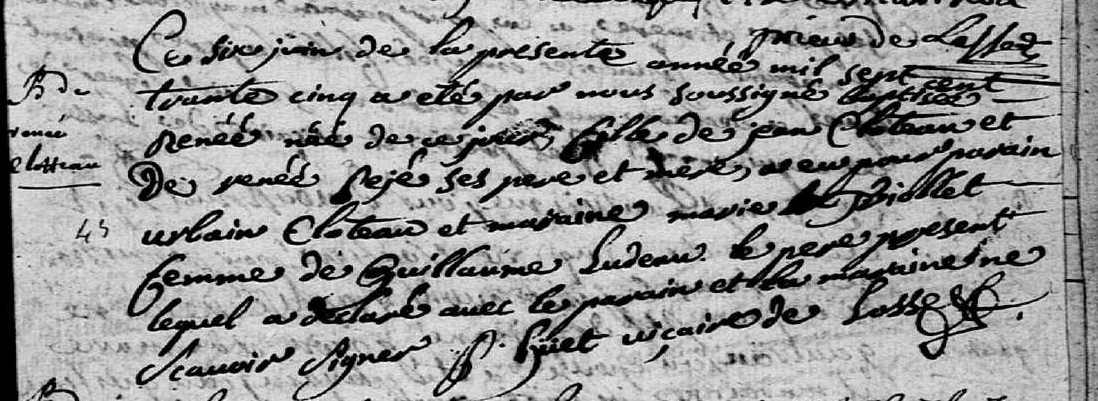 prieur de Lassé
Ce six juin de la presente année mil sept cent
trante cinq a eté par nous soussigné baptisée
Renée née de ce jour, fille de jean Cloteau et
De renée pejé ses pere et mere, a eu pour parain
urbain Cloteau et maraine marie Briollet
femme de Guillaume Ludeau le pere present
lequel a declaré avec le parain et la maraine ne
Scavoir signer P. huet viçaire de Lassé
B. de
renée
Clotteau
45